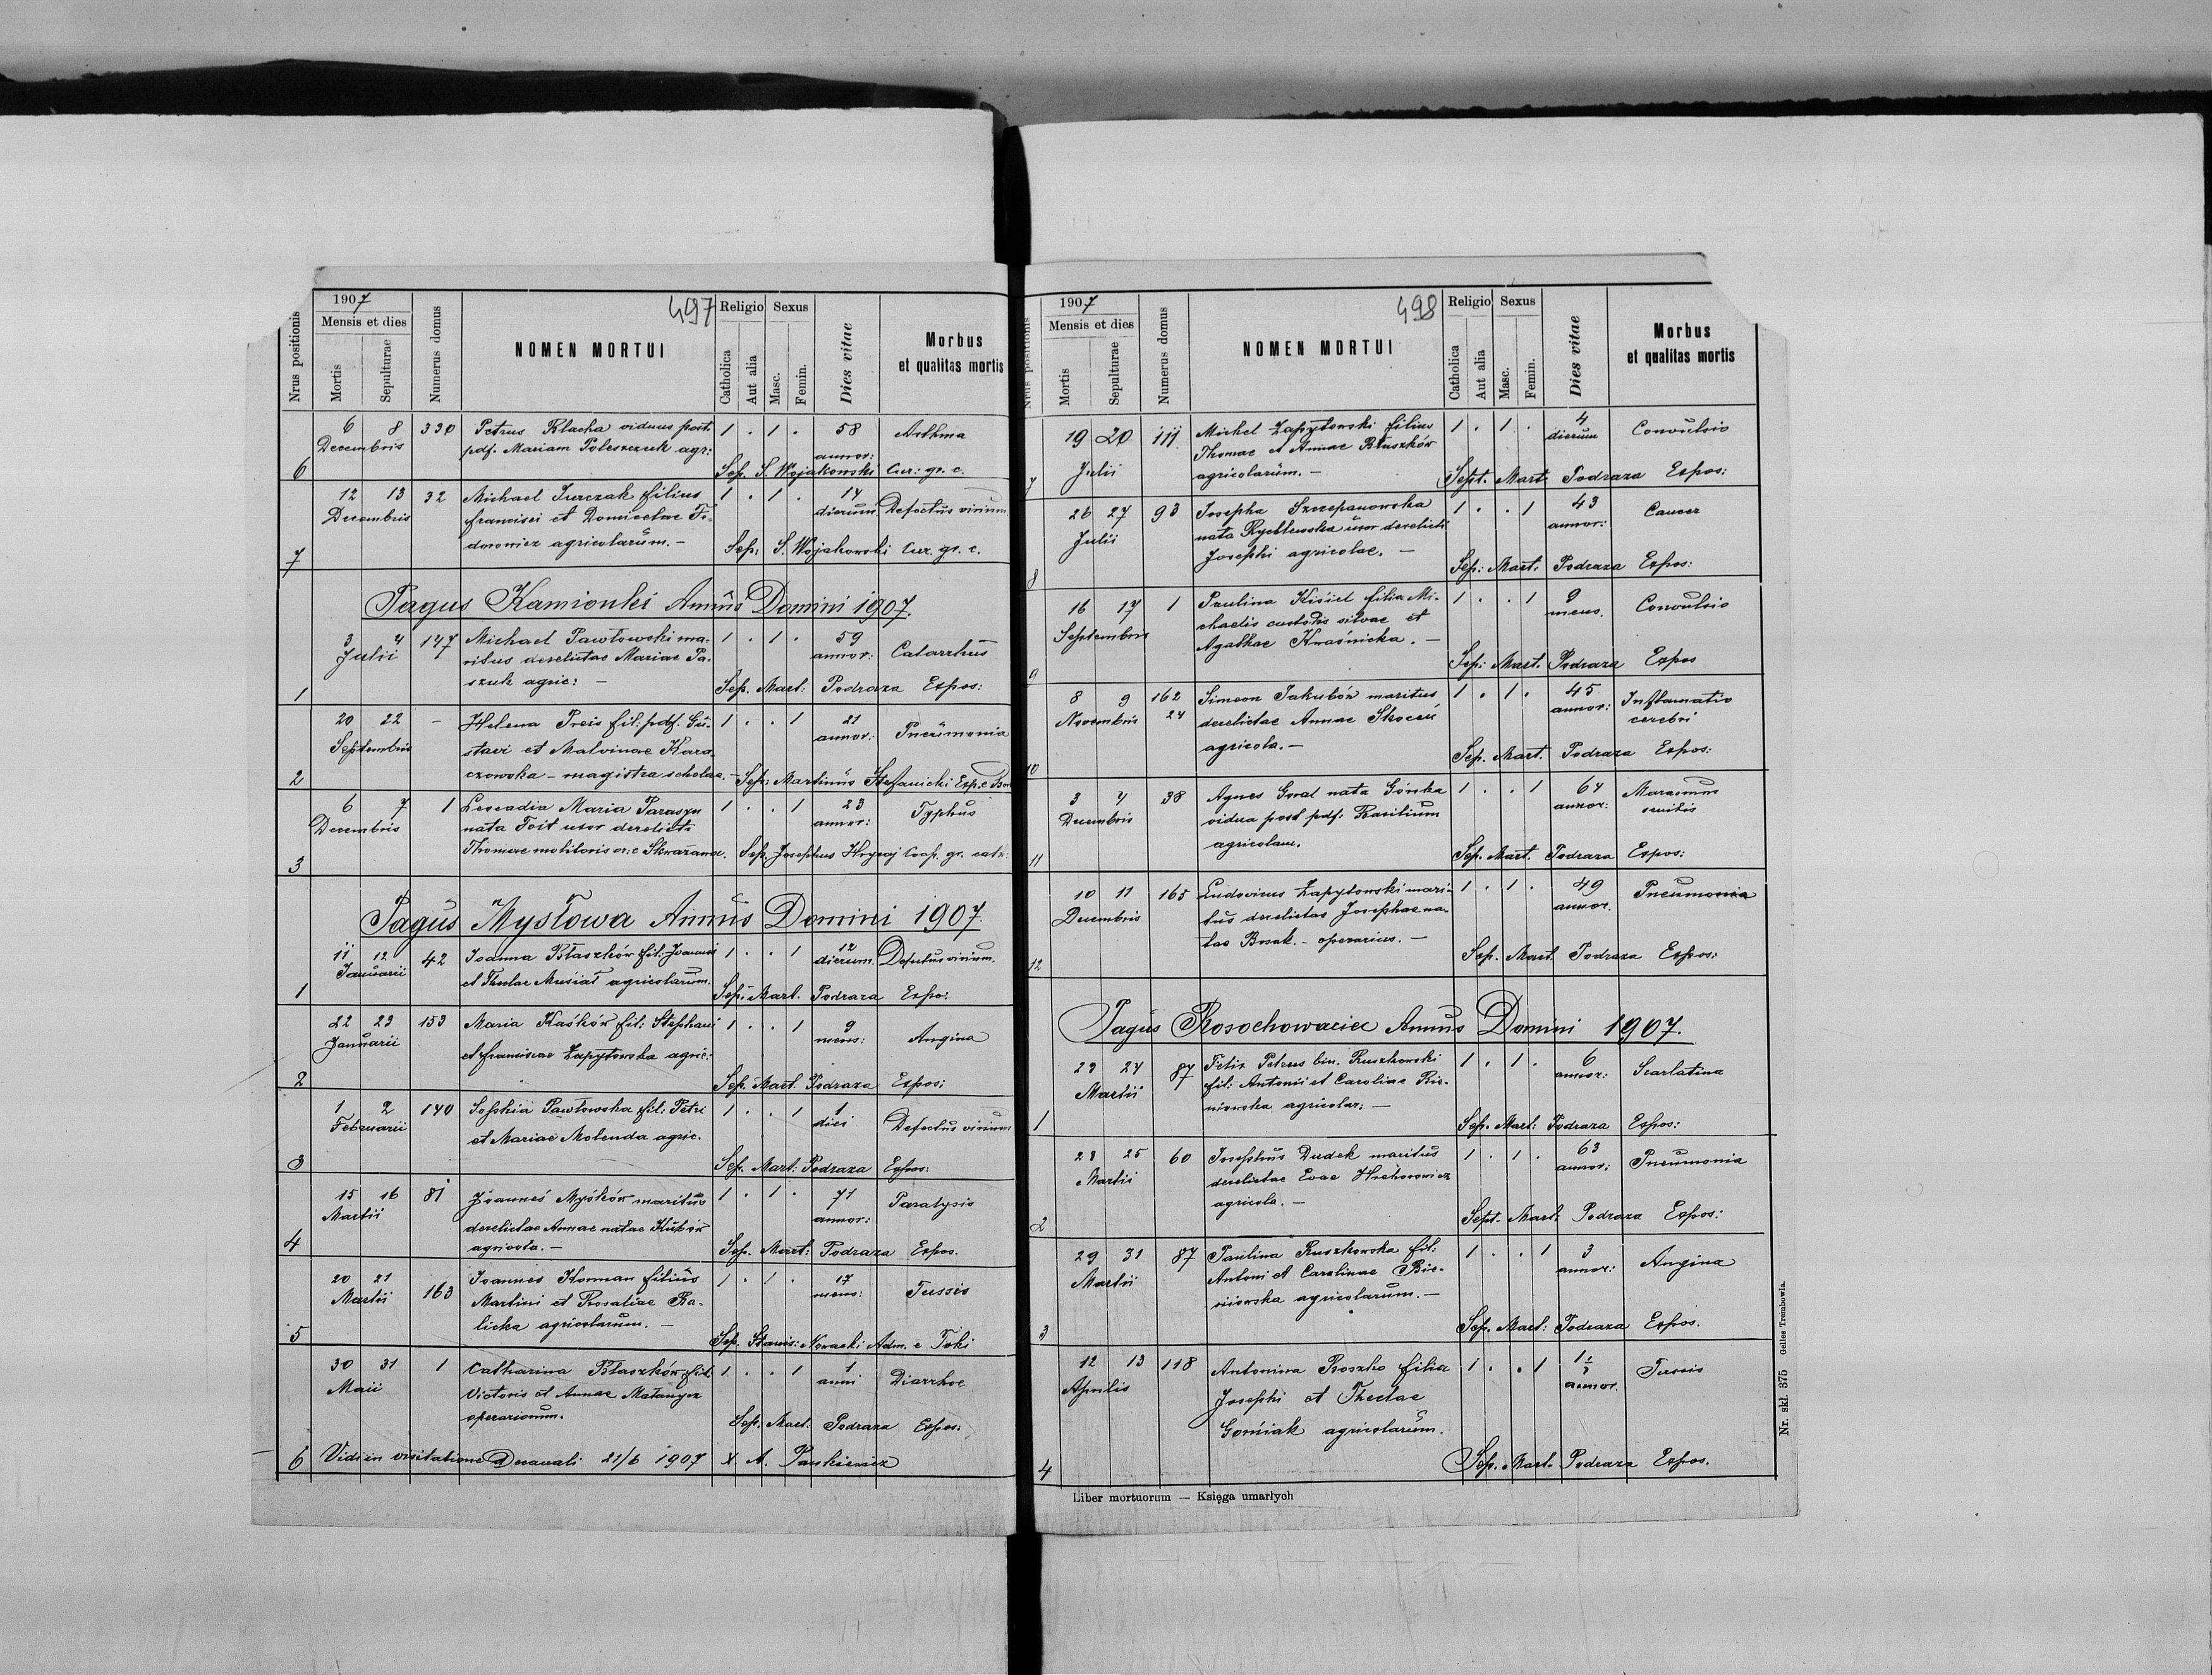 1907
497
Religio Sexus
Nrus positionis
Mensis et dies
Mortis
Sepulturae
Numerus domus
NOMEN MORTUI
Catholica
Aut alia
Masc.
Femin.
Dies vitae
Morbus
et qualitas mortis
6 8 330 Petrus Klacha viduus post. 1 . 1 . 58 Asthma
Decembris pdf. Mariam Poleszczuk agr: annor:
6 Sep. S. Wojakowski Cur: gr. c.
12 13 32 Michael Jurczak filius 1 . 1 . 14 Defectus virium
Decembris Francisci et Domicelae Fi- dierum.
dorowicz agricolarum. —
7 Sep: S. Wojakowski Cur. gr. c.
Pagus Kamionki Annus Domini 1907.
3 4 147 Michael Pawłowski ma- 1 . 1 . 59 Catarrhus
Julii ritus derelictae Mariae Pa- annor:
szuk agric: —
1 Sep. Mart: Podraza Expos:
20 22 - Helena Preis fil: pdf. Gu- 1 . . 1 21 Pneumonia
Septembris stavi et Malvinae Kara annor:
czowska — magistra scholae. —
2 Sep: Martinus Stefanicki Exp. e
6 7 1 Leocadia Maria 1 . . 1 23 Typhus
Decembris nata Toit uxor derelicti annor:
Thomae molitoris or: e
3 Sep. Josephus Hrycaj Coop. gr. cath:
Pagus Mysłowa Annus Domini 1907.
11 12 42 Joanna Błaszków fil: Joannis 1 . . 1 12 Defectus virium.
Januarii et Theclae Musiał agricolarum. dierum.
1 Sep: Mart. Podraza Expo:
22 23 153 Maria Kaśków fil: Stephani 1 . . 1 9 Angina
Januarii et Franciscae Zapytowska agric: mens:
2 Sep. Mart. Podraza Expos:
1 2 140 Sophia Pawłowska fil: Petri 1 . . 1 1 Defectus virium
Februarii et Mariae Molenda agric. diei
3 Sep. Mart: Podraza Expos:
15 16 81 Joannes Myśków maritus 1 . 1 . 71 Paralysis
Martii derelictae Annae natae Kubów annor:
agricola. —
4 Sep. Mart: Podraza Expos.
20 21 163 Joannes Korman filius 1 . 1 . 17 Tussis
Martii Martini et Rosaliae Ra- mens:
licka agricolarum. —
5 Sep. Stanis: Nowacki Adm. e Toki
30 31 1 Catharina Błaszków fil. 1 . . 1 1 Diarrhoe
Maii Victoris et Annae Matanycz anni
operariorum.
Sep. Mart. Podraza Expos:
6 Vidi in visitatione Decanali 21/6 1907 X. A. Pankiewicz
1907
498
Religio Sexus
Nrus positionis
Mensis et dies
Mortis
Sepulturae
Numerus domus
NOMEN MORTUI
Catholica
Aut alia
Masc.
Femin.
Dies vitae
Morbus
et qualitas mortis
19 20 111 Michel Zapytowski filius 1 . 1 . 4 Convulsio
Julii Thomae et Annae Błaszków dierum
agricolarum. —
7 Sept. Mart. Podraza Expos:
26 27 93 Josepha Szczepanowska 1 . . 1 43 Cancer
Julii nata Rychlewska uxor derelicti annor:
Josephi agricolae. —
8 Sep: Mart. Podraza Expos:
16 17 1 Paulina Kisiel filia Mi- 1 . . 1 9 Convulsio
Septembris chaelis custodis silvae et mens.
Agathae Kraśnicka. —
9 Sep: Mart. Podraza Expos
8 9 162 Simeon Jakubów maritus 1 . 1 . 45 Inflamatio
Novembris 24 derelictae Annae annor: cerebri
agricola. —
10 Sep. Mart. Podraza Expos:
3 4 38 Agnes Goral nata Górska 1 . . 1 64 Marasmus
Decembris vidua post pdf. Basilium annor: senilis
agricolam.
11 Sep. Mart. Podraza Expos:
10 11 165 Ludovicus Zapytowski mari- 1 . 1 . 49 Pneumonia
Decembris tus derelictae Josephae na- annor.
tae Bosak. — operarius. —
12 Sep. Mart. Podraza Expos:
Pagus Rosochowaciec Annus Domini 1907.
23 24 87 Felix Petrus bin. Ruszkowski 1 . 1 . 6 Scarlatina
Martii fil: Antonii et Carolinae Bie- annor:
niowska agricolar: —
1 Sep. Mart: Podraza Expos:
23 25 60 Josephus Dudek maritus 1 . 1 . 63 Pneumonia
Martii derelictae Evae Hrehorowicz annor:
agricola. —
2 Sept. Mart: Podraza Expos:
29 31 87 Paulina Ruszkowska fil: 1 . . 1 3 Angina
Martii Antoni et Carolinae Bie- annor:
niowska agricolarum. —
3 Sep. Mart: Podraza Expos.
12 13 118 Antonina Roszko filia 1 . . 1 Tussis
Aprilis Josephi et Theclae annor.
Gorniak agricolarum.
4 Sep. Mart. Podraza Expos.
Liber mortuorum — Księga umarłych
Nr. skł. 375 Gelles Trembowla.